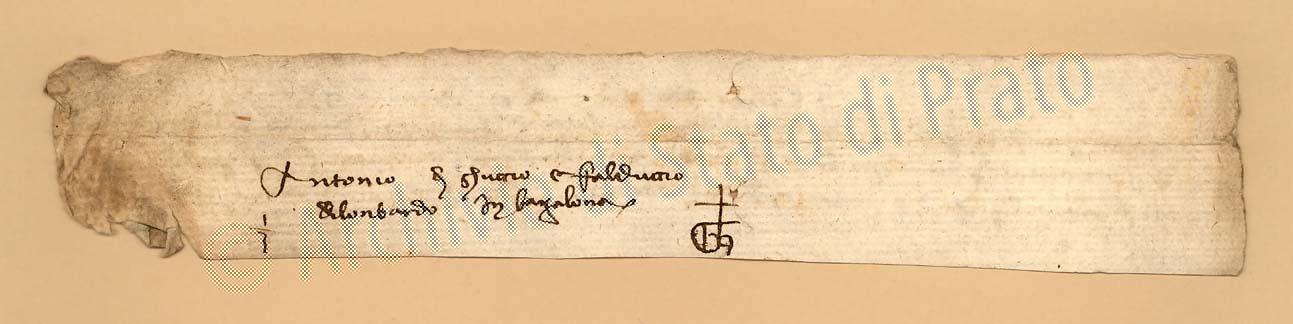 Antonio di ghuccio e falduccio
dilonbardo in barzalona
© Archivio di Stato di Prato